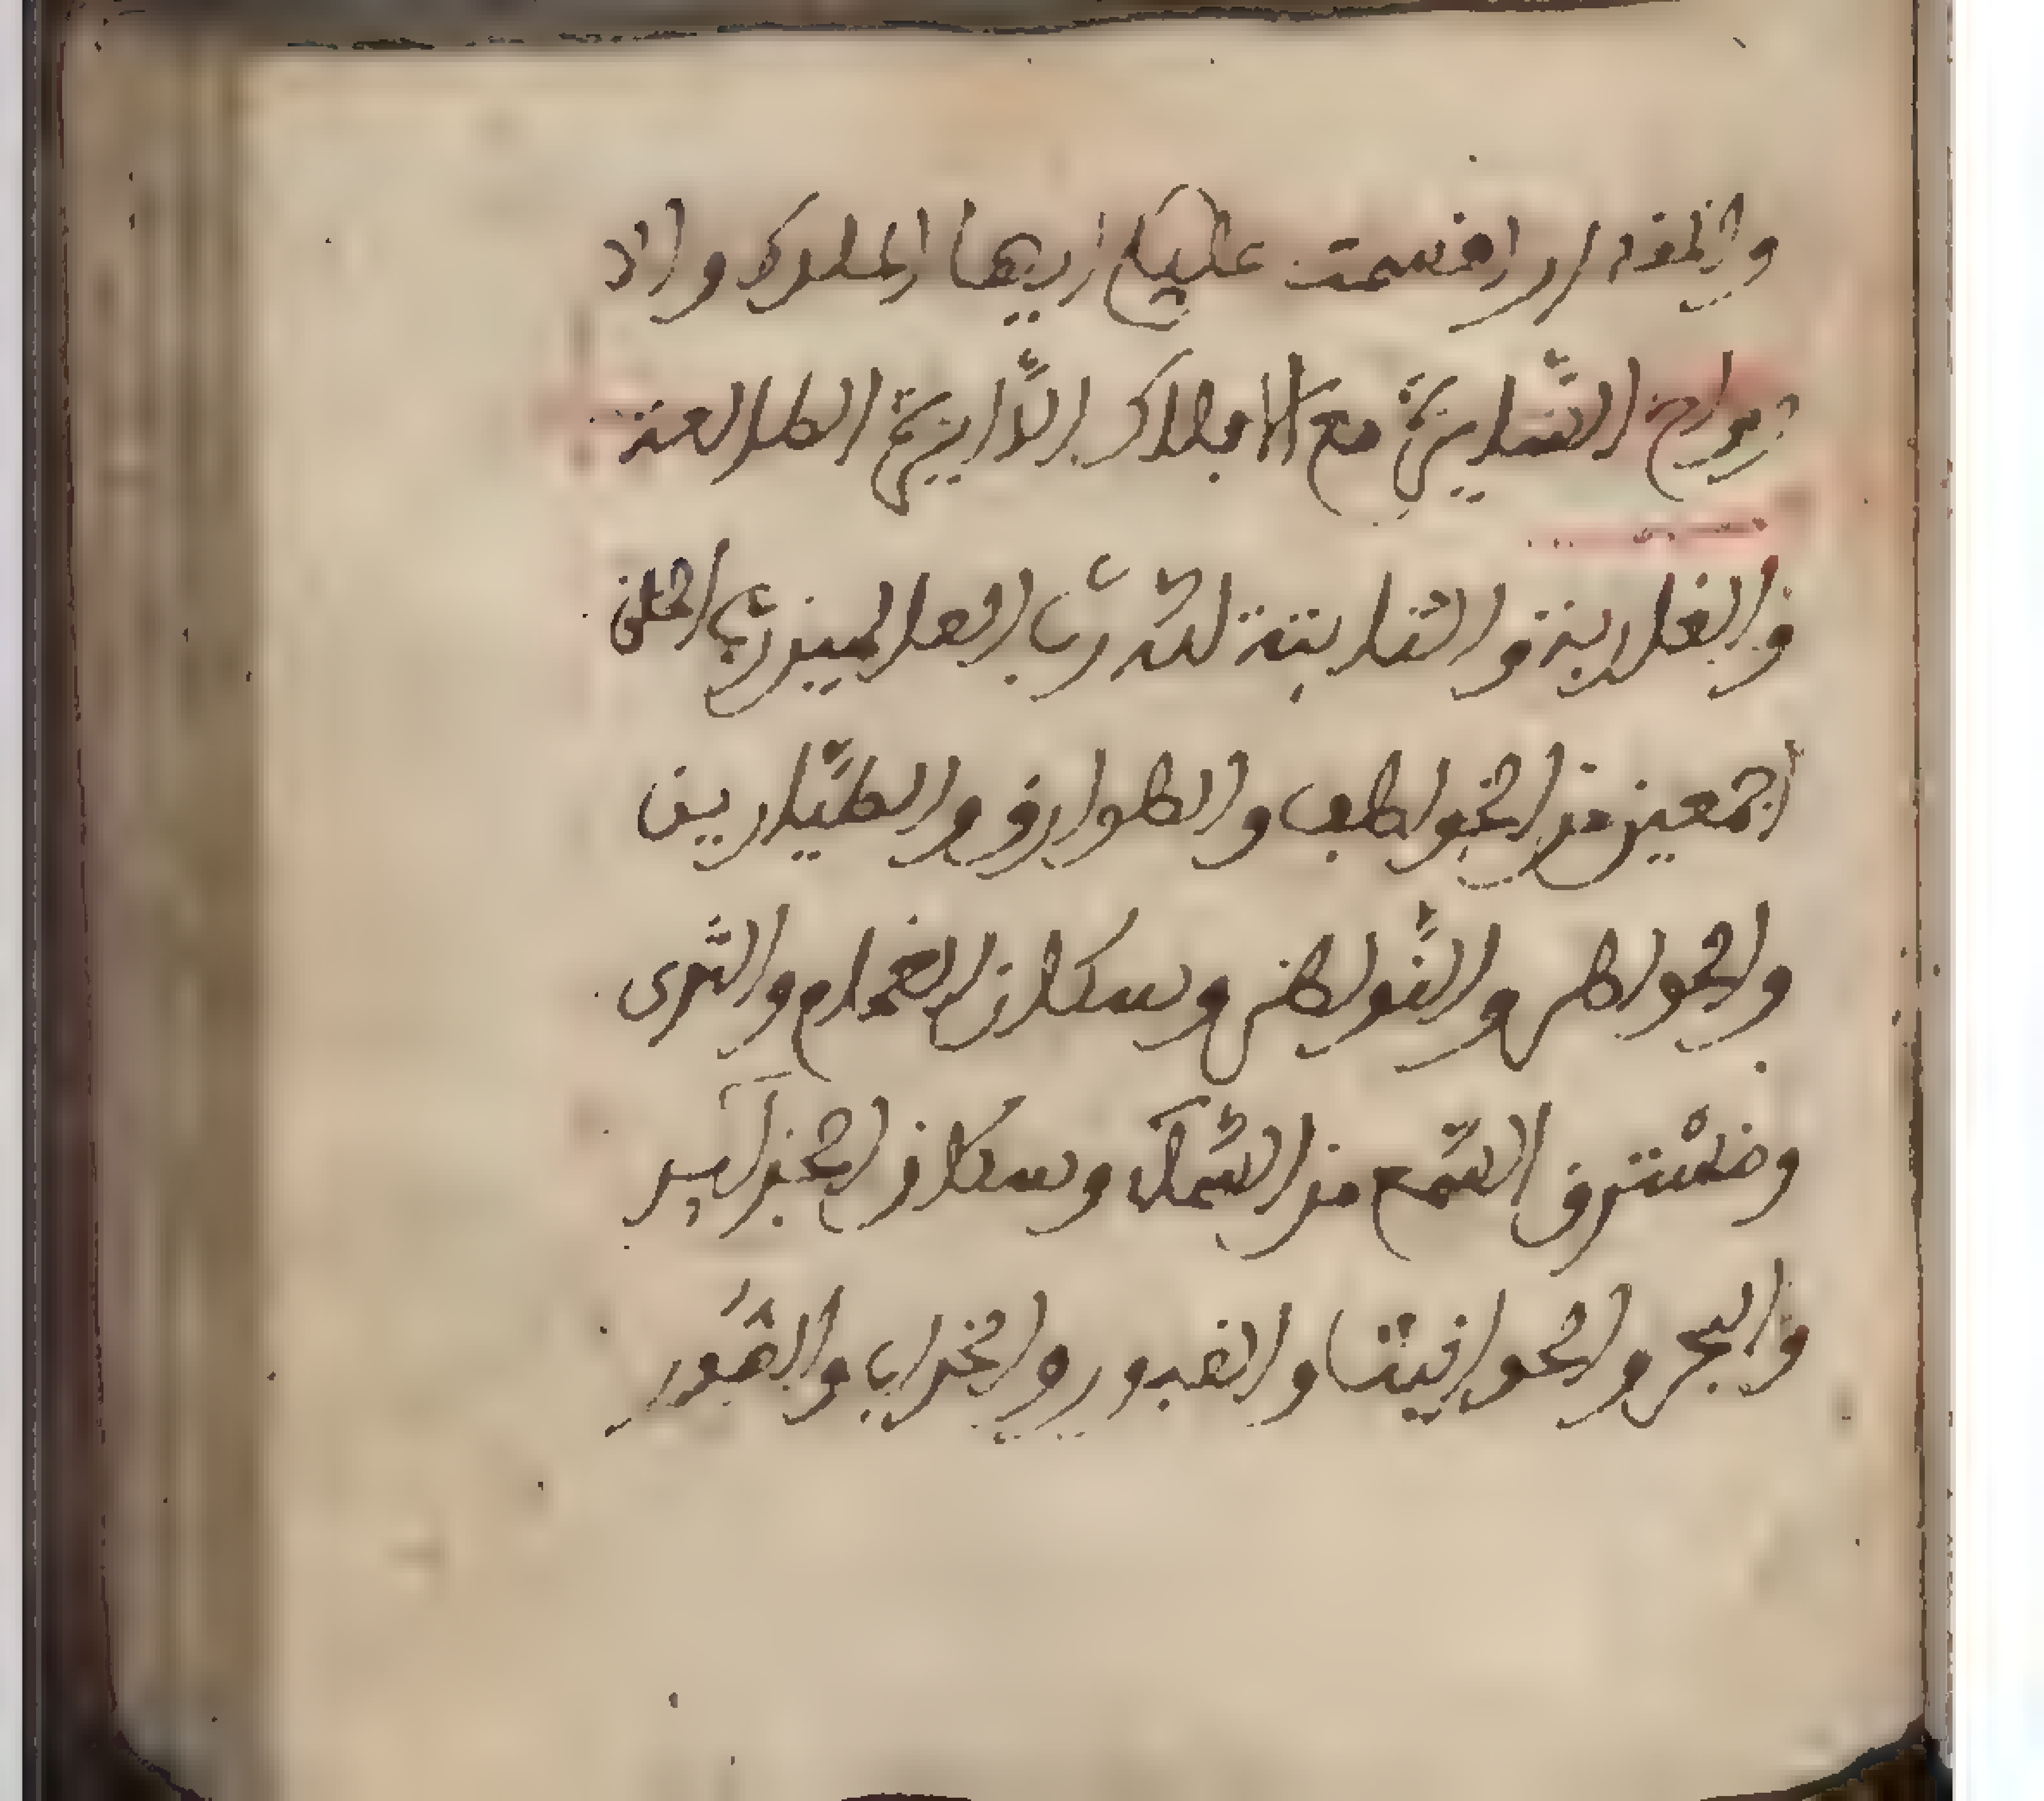 والمقدار اقسمت عليكم ايها الملوك والار
رواح السايرة مع الافلاك الدايرة الطالعة
والغاربة والثابتة لله رب العالمين رب الخلق
اجمعين من الخواطف والطوارق والطيارين
والخواطر والنواطر وسكان الغمام والثرى
ومسترق السمع من السماك وسكان الجزاير
والبحر والحوانيت والقبور والخراب